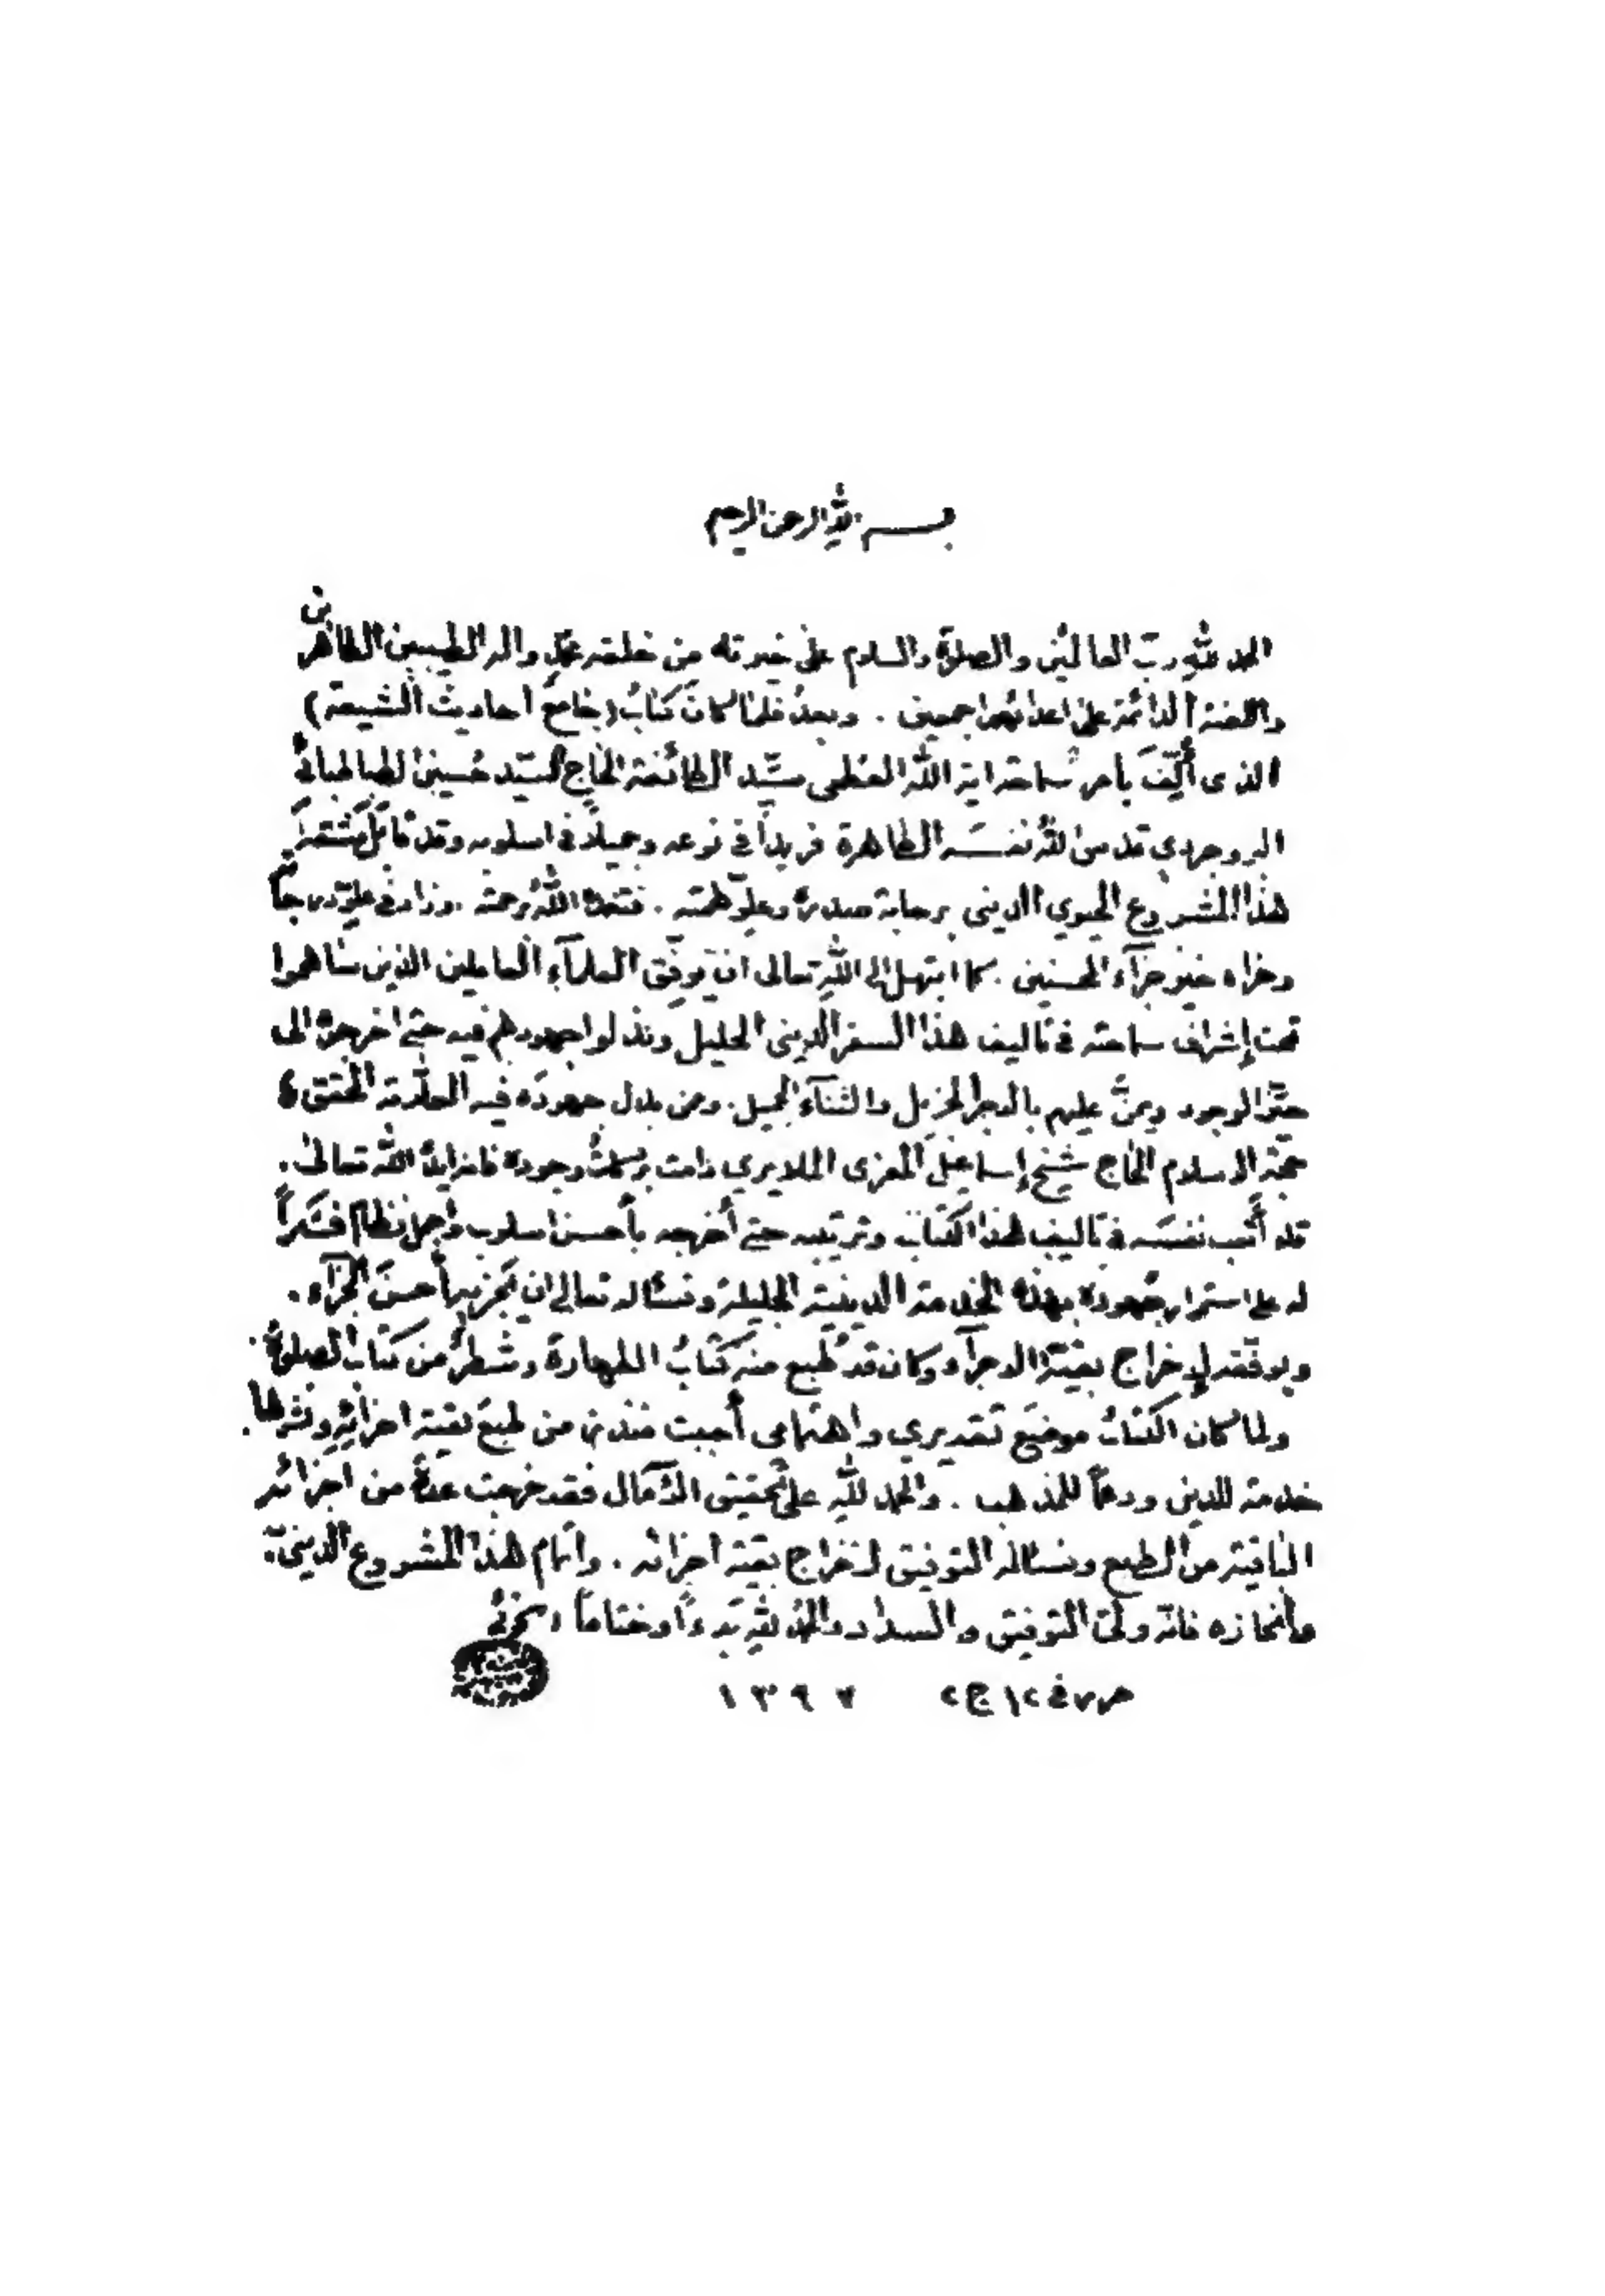 بسم الله الرحمن الرحيم
الحمد لله رب العالمين والصلاة والسلام على خيرته من خلقه محمد واله الطيبين الطاهرين
واللعنة الدائمة على اعدائهم اجمعين . وبعد فلما كان كتاب (جامع احاديث الشيعة)
الذى أُلِّفَ بأمر سماحة اية الله العظمى سيّد الطائفة الحاج السيّد حُسين الطباطبائى
البروجردي قدس الله نفسَه الطاهرة فريداً في نوعه وجميلاً في اسلوبه وقد
هذا المشروع الحيوي الدينى برحابة صدره وعلوّ همّته . فتغمده الله برحمته . وزاد في علوّ درجاته
وجزاه خير جزآء المحسنين . كما ابتهل الى الله تعالى ان يوفّق العلمآء العاملين الذين ساهموا
تحت إشراف سماحته في تاليف هذا السفر الدينى الجليل وبذلوا جهودهم فيه حتى اخرجوه الى
حيّز الوجود ويمنّ عليهم بالاجر الجزيل والثنآء الجميل . وممن بذل جهوده فيه العلّامة المحقق
حجة الاسلام الحاج شيخ إسماعيل المعزى الملايري دامت بركات وجوده فانه ايده الله تعالى .
قد أتعب نفسَه في تاليف هذا الكتاب وترتيبه حتى أخرجه بأحسن اسلوب واجمل نظام فشكراً
له على استمرار جُهوده بهذه الخدمة الدينية الجليلة ونسأله تعالى ان يجزيه أحسن الجزآء .
ويوفقه لإخراج بقية الاجزآء وكان قد طُبع منه كتابُ الطهارة وشطرٌ من كتاب الصلوة .
ولما كان الكتاب موضع تقديري واهتمامي أحببت من طبع بقية اجزائه ونشرها .
خدمة للدين ودعماً للمذهب . والحمد لله على تحقيق الآمال فقد خرجت عدة من اجزائه
الباقية من الطبع ونسأله التوفيق لاخراج بقية اجزائه . واتمام هذا المشروع الدينىّ .
وانجازه فانه ولىّ التوفيق والسداد والحمد لله بدءاً وختاماً
في ١٢ ج٢ ١٣٩٧